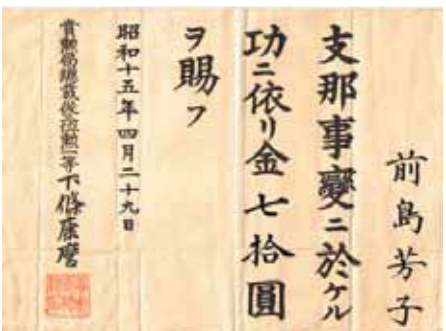 前島芳子
支那事變ニ於ケル
功ニ依リ金七拾圓
ヲ賜フ
昭和十五年四月二十九日
賞勲局總裁從三位勲一等下條康麿